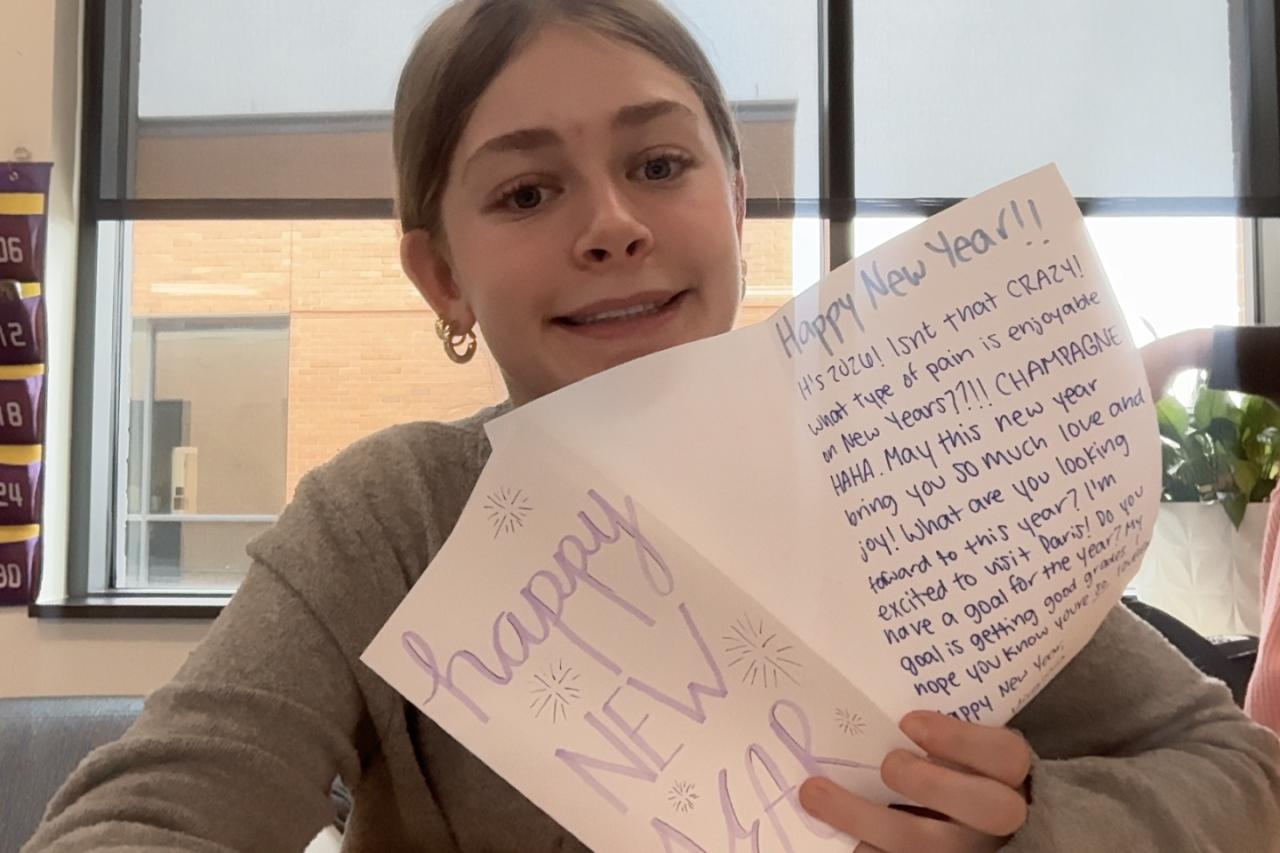 06
12
18
24
30
happy
NEW
YEAR
Happy New Year!!
It's 2026! Isnt that CRAZY!
What type of pain is enjoyable
on New Years??!!! CHAMPAGNE
HAHA. May this new year
bring you so much love and
joy! What are you looking
foward to this year? I'm
excited to visit Paris! Do you
have a goal for the year? My
goal is getting good grades. I
hope you know youre so
happy New Year,